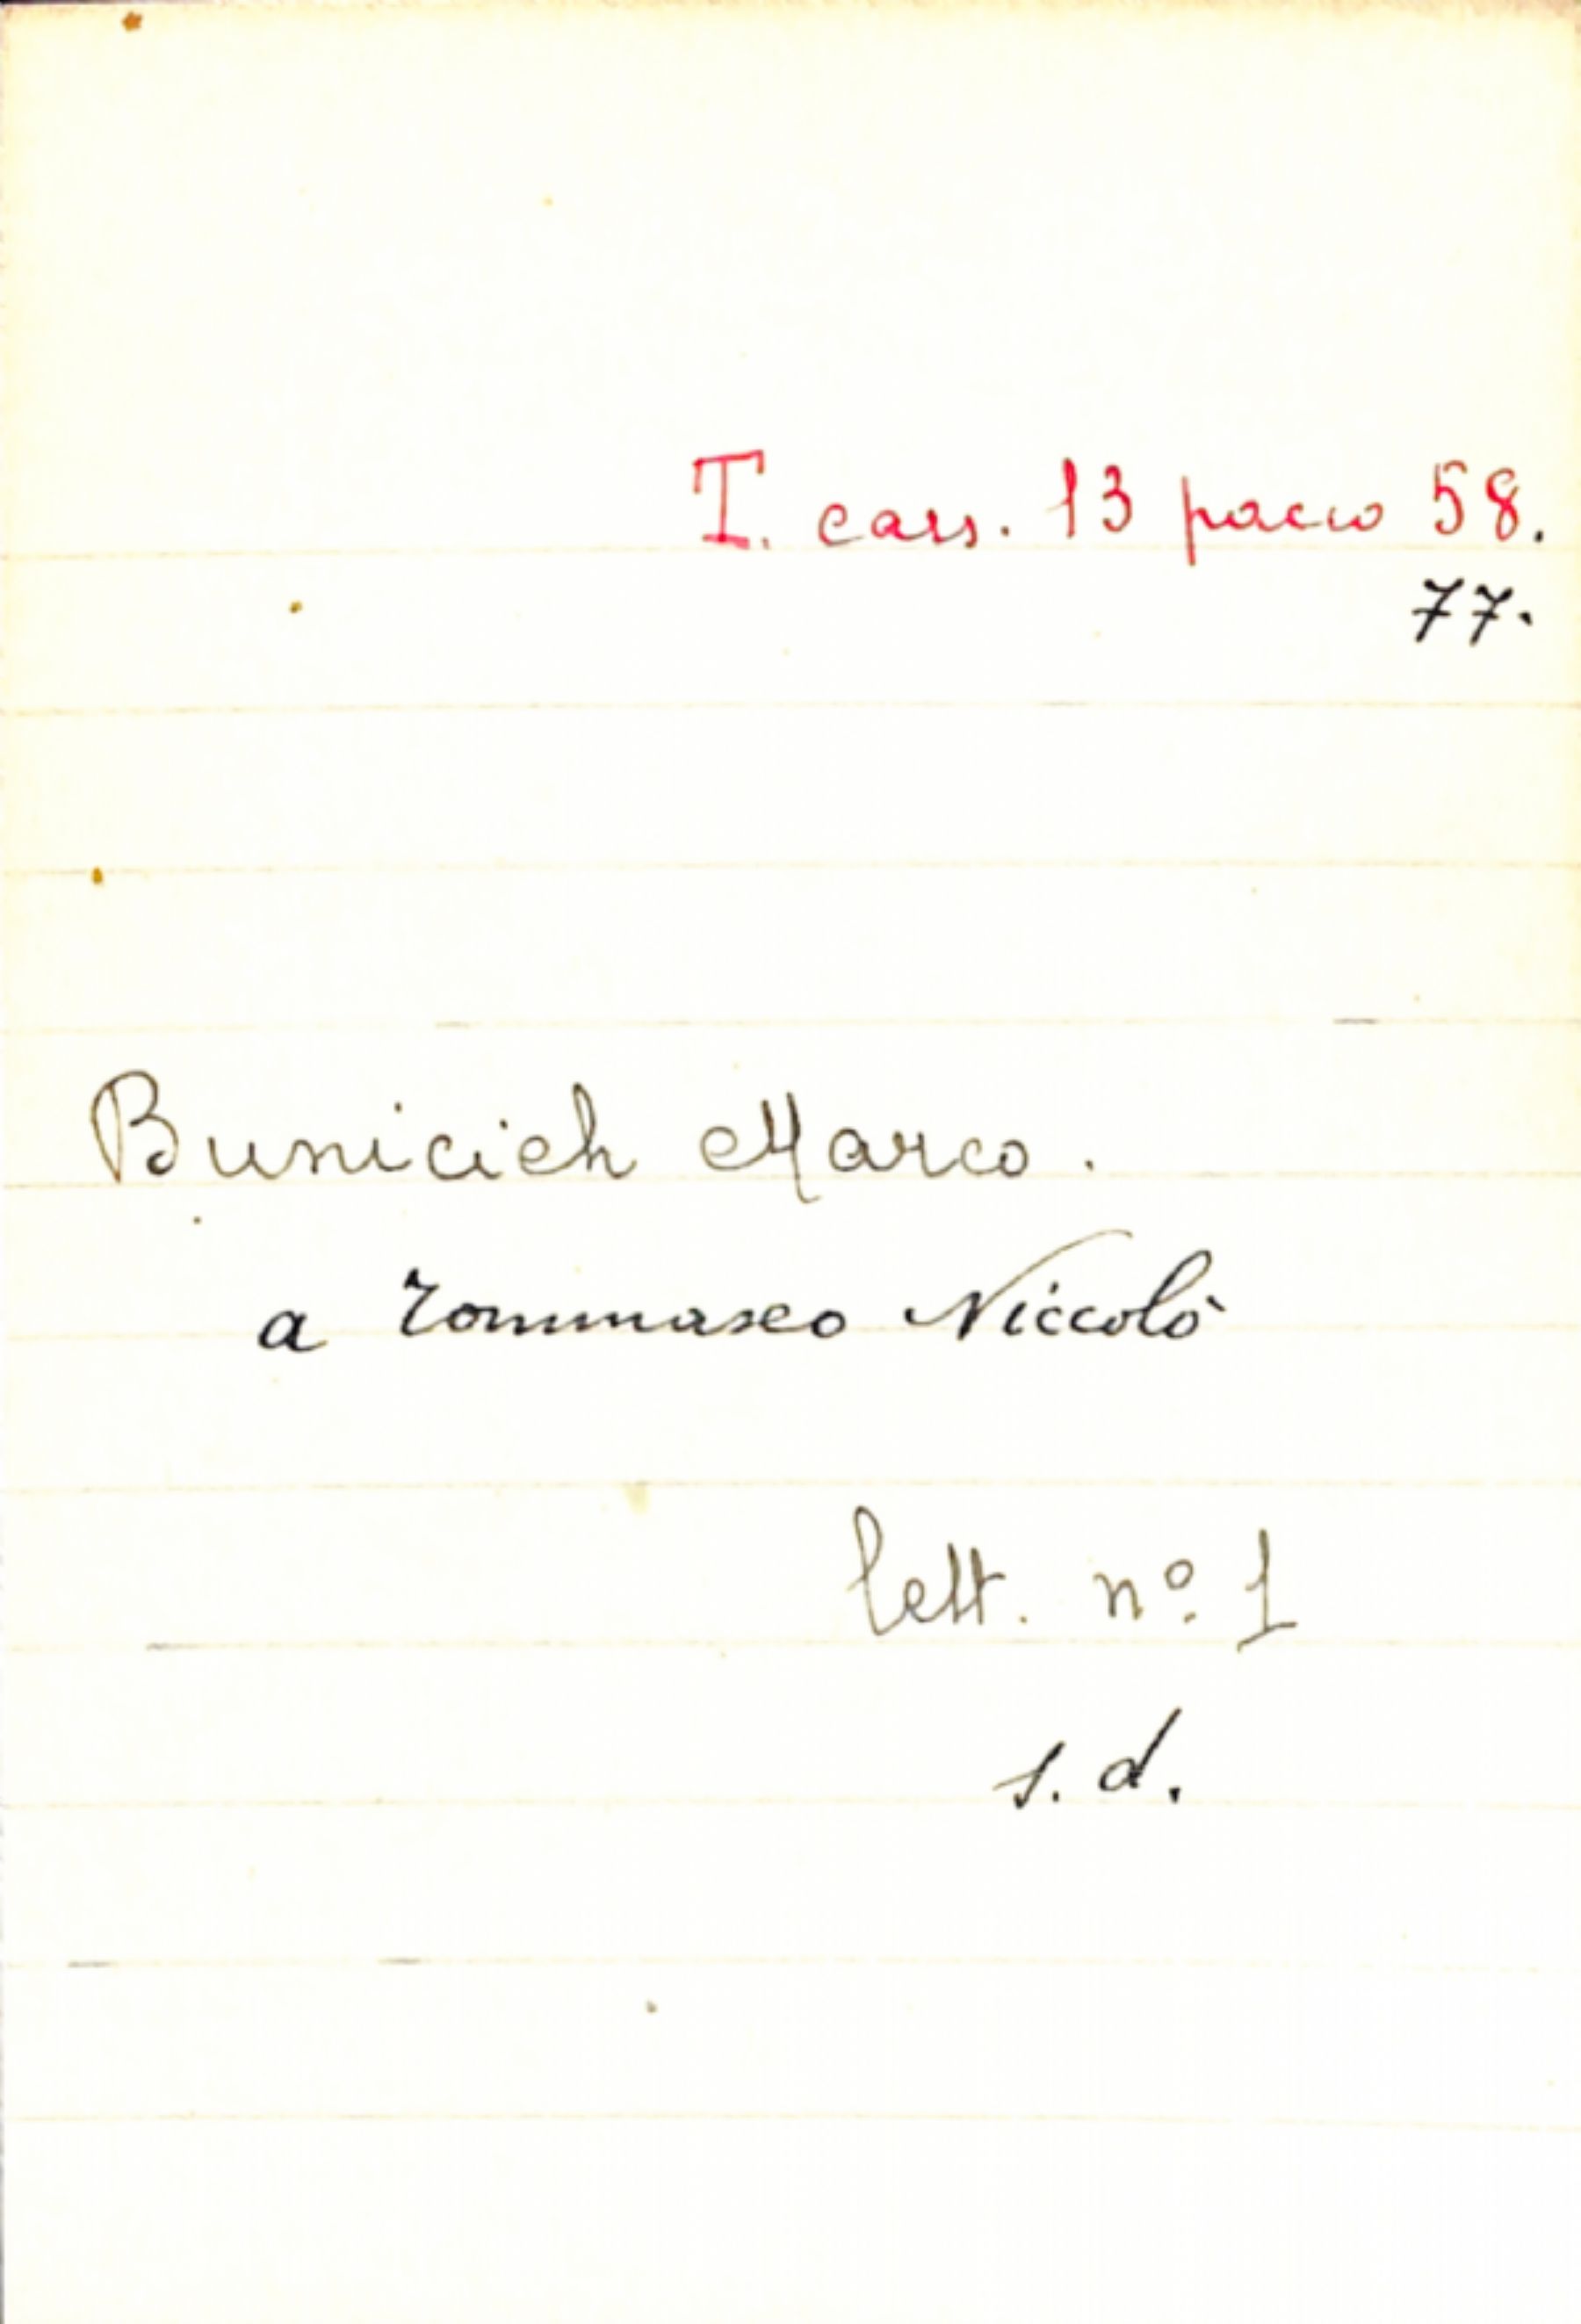 T. cass. 13 pacco 58.
77.
Bunicich Marco.
a Tommaseo Niccolò
lett. nº 1
s. d.